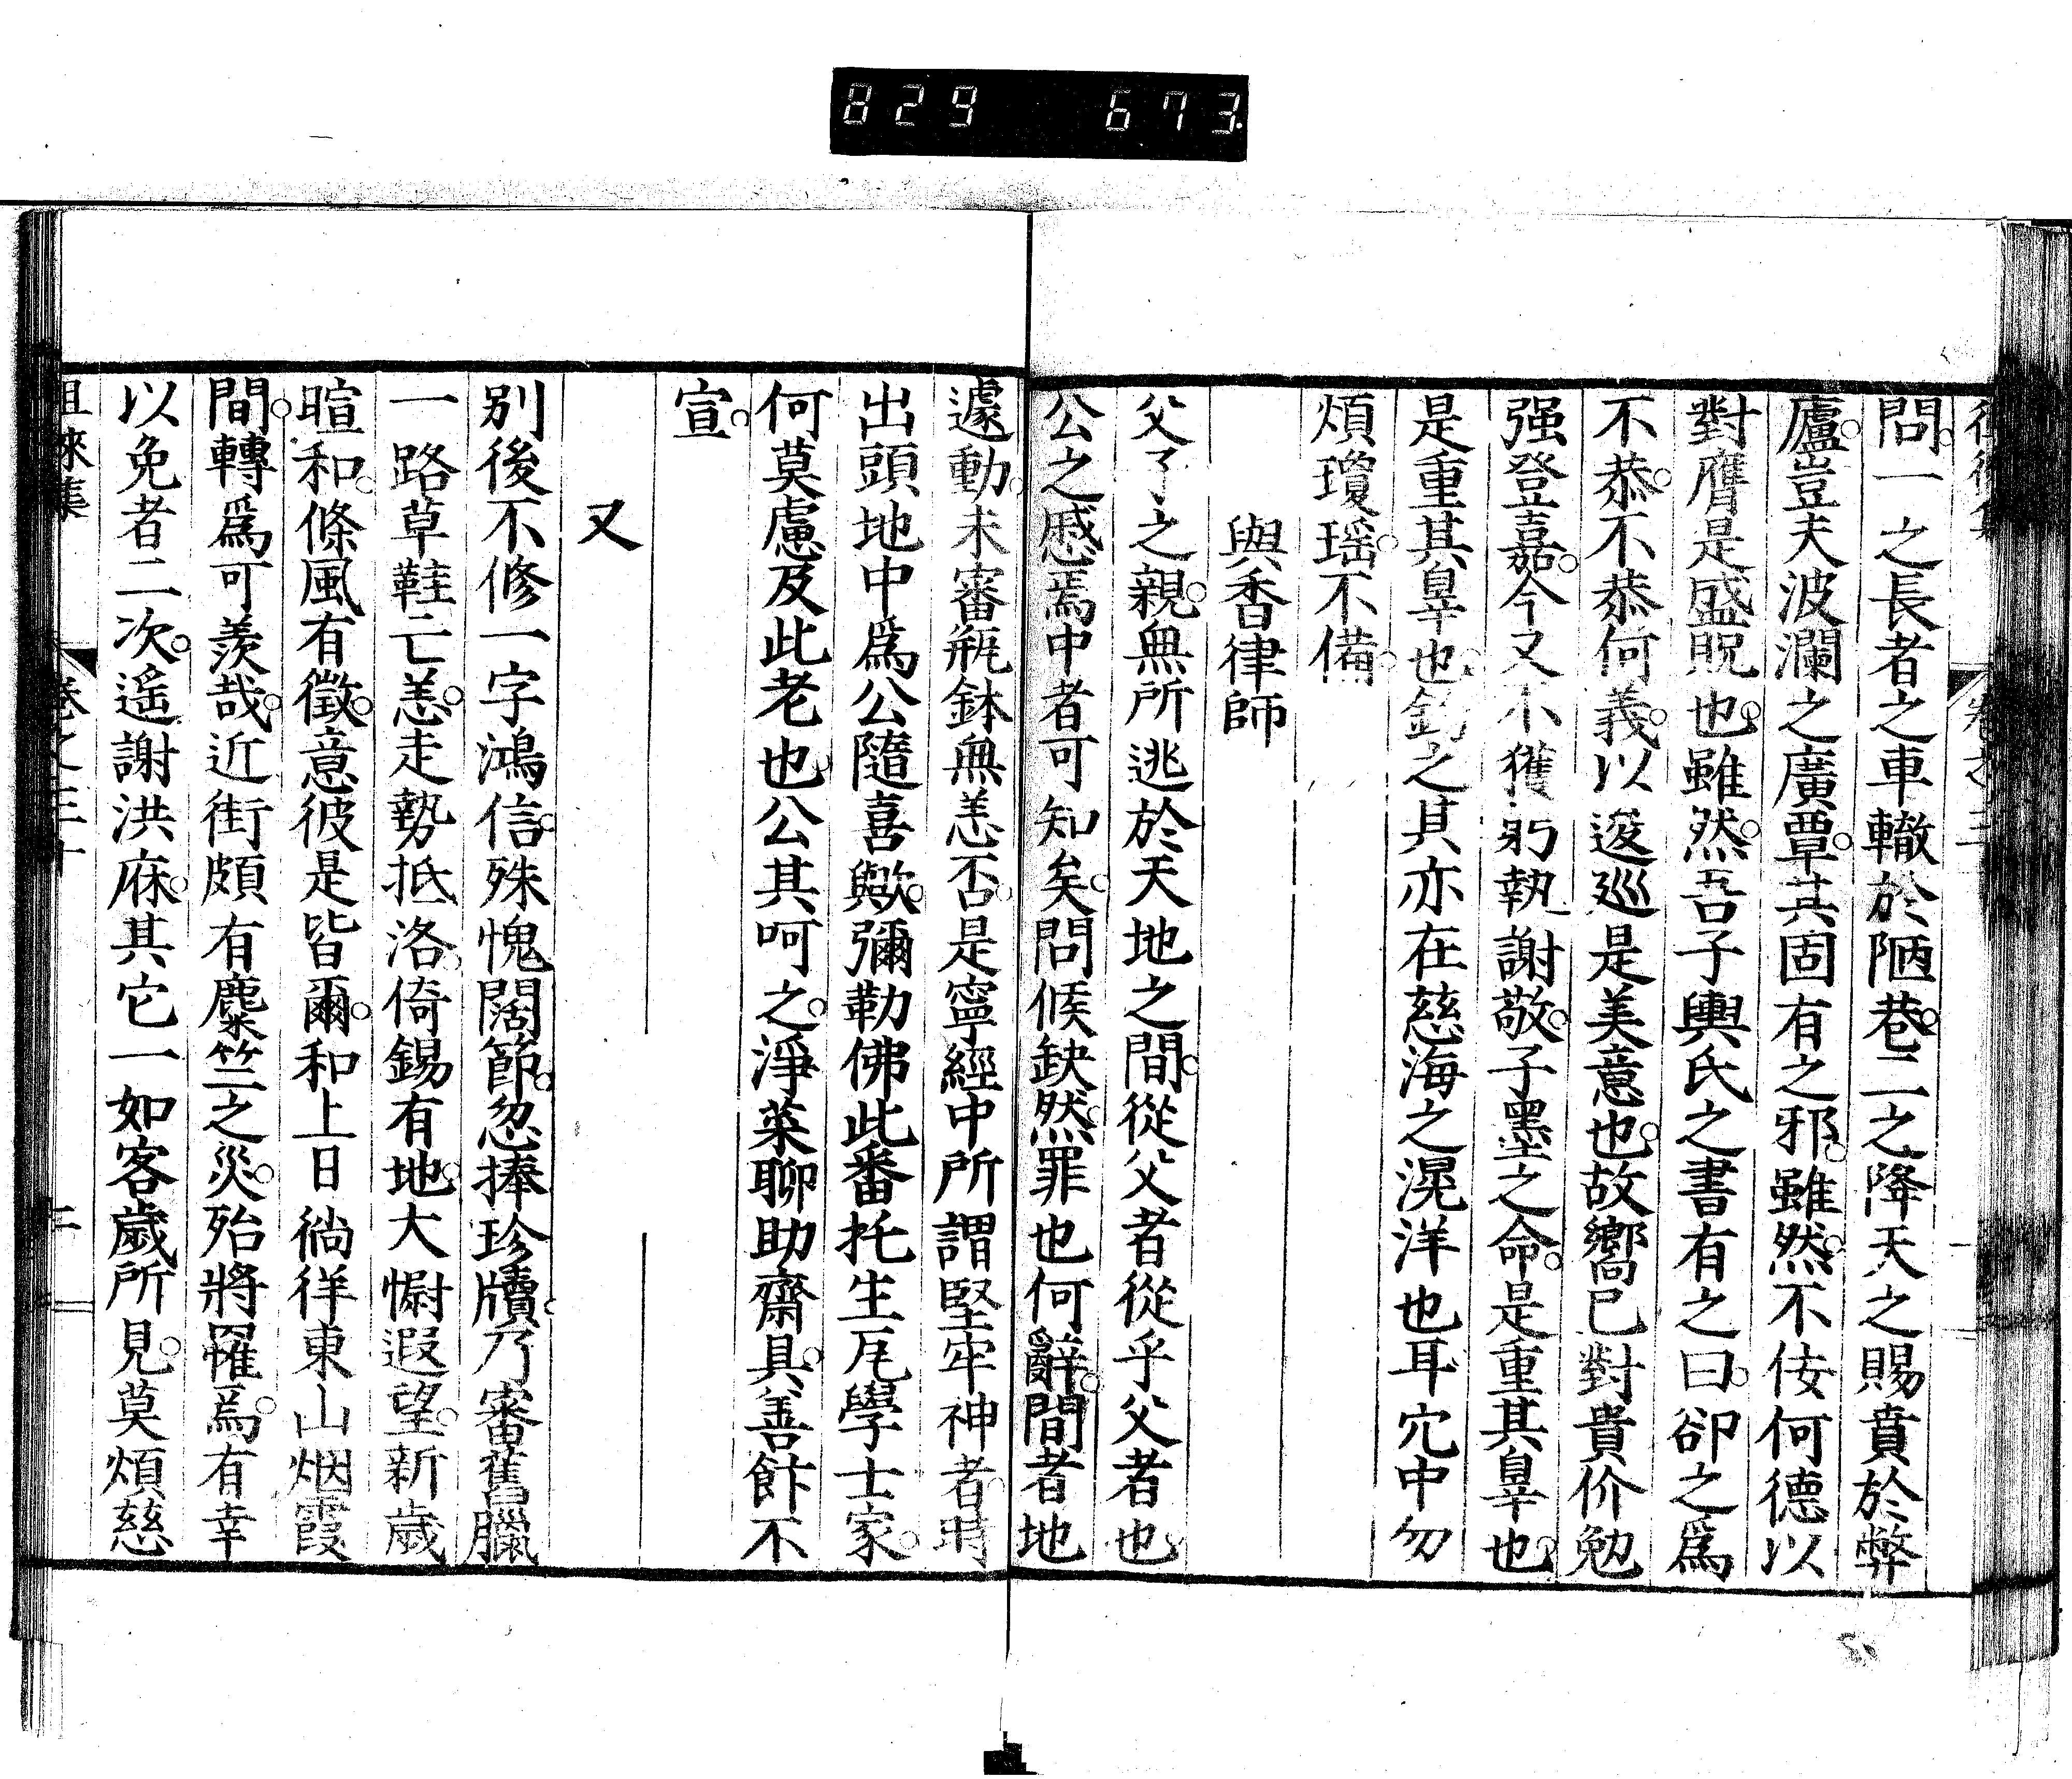 829 673
問。一之長者之車轍於陋巷。二之降天之賜賁於弊
廬。豈夫波瀾之廣覃。其固有之邪。雖然。不佞何德以
對膺是盛貺也。雖然。吾子輿氏之書有之曰。卻之爲
不恭。不恭何義。以逡巡是美意也。故嚮已對貴价勉
强登嘉。今又不獲躬執謝敬。子墨之命。是重其辠也。
是重其辠也。釣之其亦在慈海之滉洋也耳。穴中勿
煩瓊瑤。不備。
與香律師
父子之親。無所逃於天地之間。從父者從乎父者也。
公之慼焉中者可知矣。問候缺然。罪也何辭。間者地
遽動。未審瓶鉢無恙否。是寧經中所謂堅牢神者。時
出頭地中爲公隨喜歟。彌勒佛此番托生尾學士家。
何莫慮及此老也。公其呵之。淨菜聊助齋具。善飰不
宣。
又
別後不修一字鴻信。殊愧闊節。忽捧珍牘。乃審舊臘
一路草鞋亡恙。走勢抵洛。倚錫有地。大慰遐望。新歲
暄和。條風有徵。意彼是皆爾。和上日徜徉東山烟霞
間。轉爲可羨哉。近街頗有麋竺之災。殆將罹焉。有幸
以免者二次。遙謝洪庥。其它一如客歲所見。莫煩慈
徂徠集 卷之三十